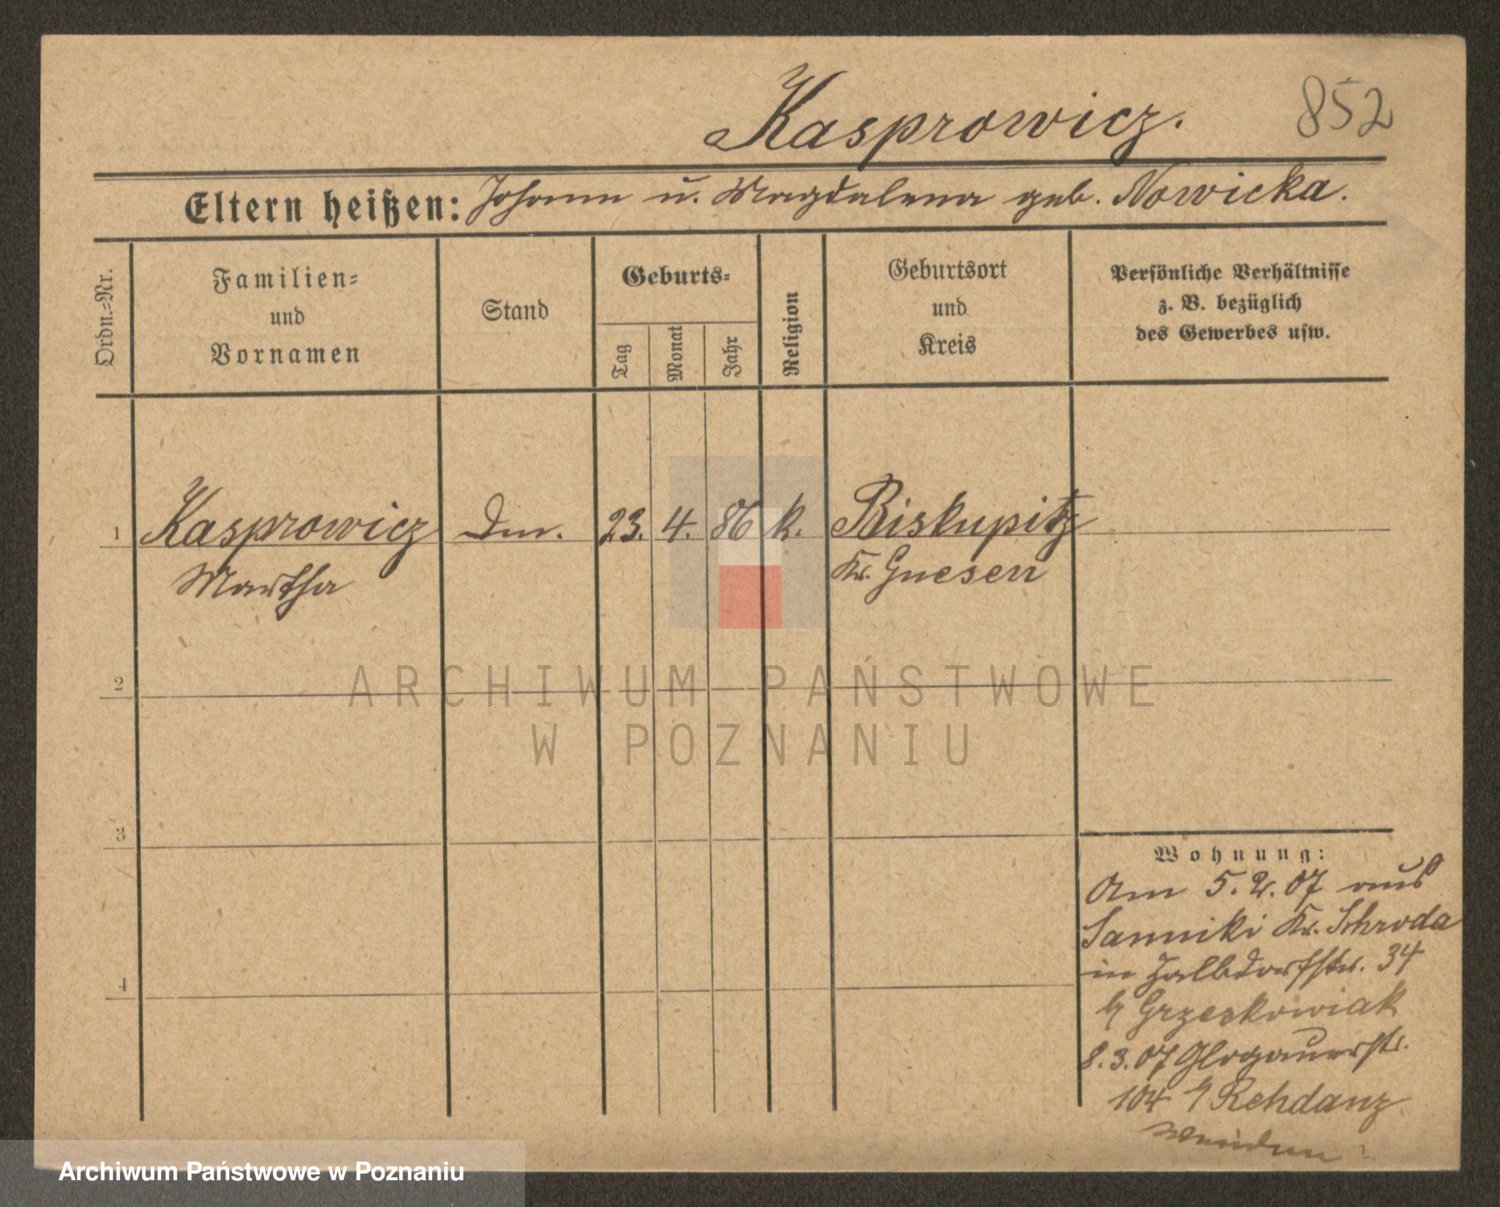 Kasprowicz.
852
Eltern heißen: Johann u. Magdalena geb. Nowicka.
Ordn.=Nr.
Familien=
und
Vornamen
Stand
Geburts=
Tag
Monat
Jahr
Religion
Geburtsort
und
Kreis
Persönliche Verhältnisse
z. B. bezüglich
des Gewerbes usw.
1 Kasprowicz 23. 4. 86 k. Biskupitz
Martha Kr. Gnesen
2
ARCHIWUM PAŃSTWOWE
W POZNANIU
3
4
Wohnung:
Am 5.2.07 aus
Sanniki Kr. Schroda
in Halbdorfstr. 34
b/ Grzeskowiak
8.3.07 Glogauerstr.
104 b/ Rehdanz
wenden
Archiwum Państwowe w Poznaniu